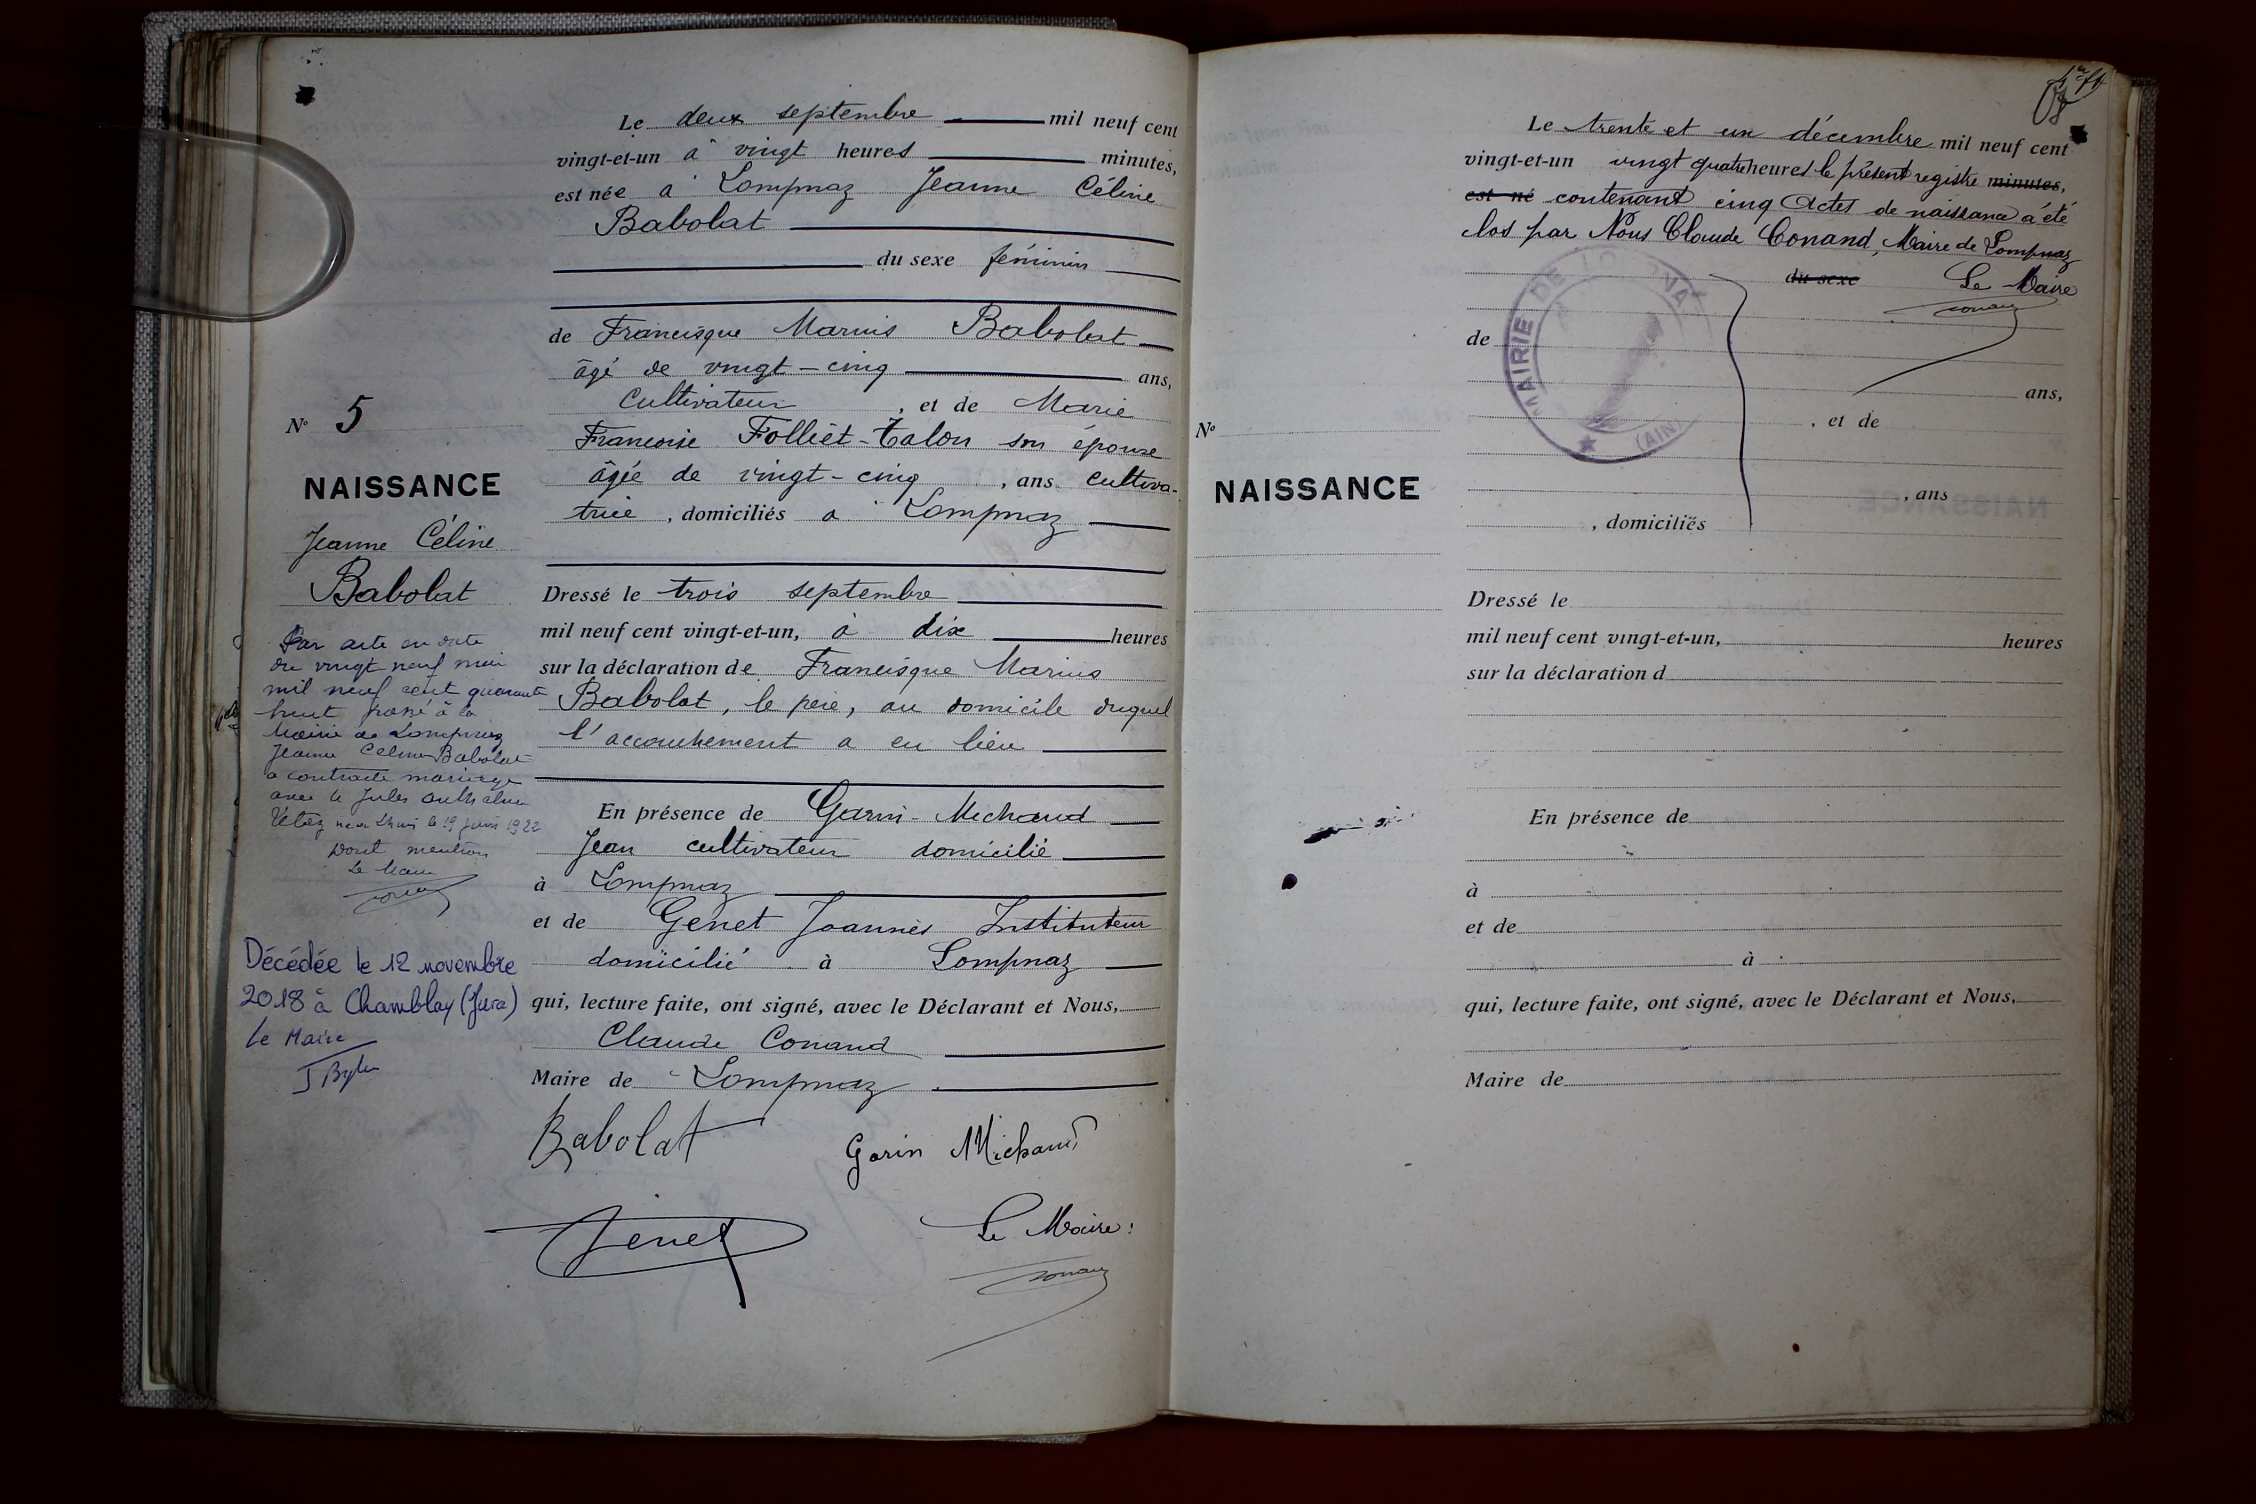 Le deux septembre mil neuf cent
vingt-et-un à vingt heures minutes,
est née à Lompnaz Jeanne Céline
Babolat
du sexe féminin
de Francisque Marius Babolat
âgé de vingt-cinq ans,
Cultivateur, et de Marie
Françoise Folliet-Talon son épouse
âgée de vingt-cinq, ans cultiva-
trice, domiciliés à Lompnaz
Dressé le trois septembre
mil neuf cent vingt-et-un, à dix heures
sur la déclaration de Francisque Marius
Babolat, le père, au domicile duquel
l'accouchement a eu lieu
En présence de Garin-Michaud
Jean cultivateur domicilié
à Lompnaz
et de Genet Joannès Instituteur
domicilié à Lompnaz
qui, lecture faite, ont signé, avec le Déclarant et Nous,
Claude Conand
Maire de Lompnaz
Babolat Garin Michaud
Genet
Le Maire:
Conand
N° 5
NAISSANCE
Jeanne Céline
Babolat
Par acte en date
du vingt neuf mai
mil neuf cent quarante
huit passé à la
Mairie de Lompnaz
Jeanne Céline Babolat
a contracté mariage
avec le Jules Anthelme
le 19 juin 1922
Dont mention
Le Maire
Décédée le 12 novembre
2018 à Chamblay (Jura)
Le Maire
Le trente et un décembre mil neuf cent
vingt-et-un vingt quatre heures le présent registre minutes,
est né contenant cinq Actes de naissance a été
clos par Nous Claude Conand, Maire de Lompnaz
du sexe Le Maire
Conand
MAIRIE DE LOMPNAZ
(AIN)
de
ans,
, et de
N°
NAISSANCE
, ans
, domiciliés
Dressé le
mil neuf cent vingt-et-un, heures
sur la déclaration d
En présence de
à
et de
à
qui, lecture faite, ont signé, avec le Déclarant et Nous,
Maire de